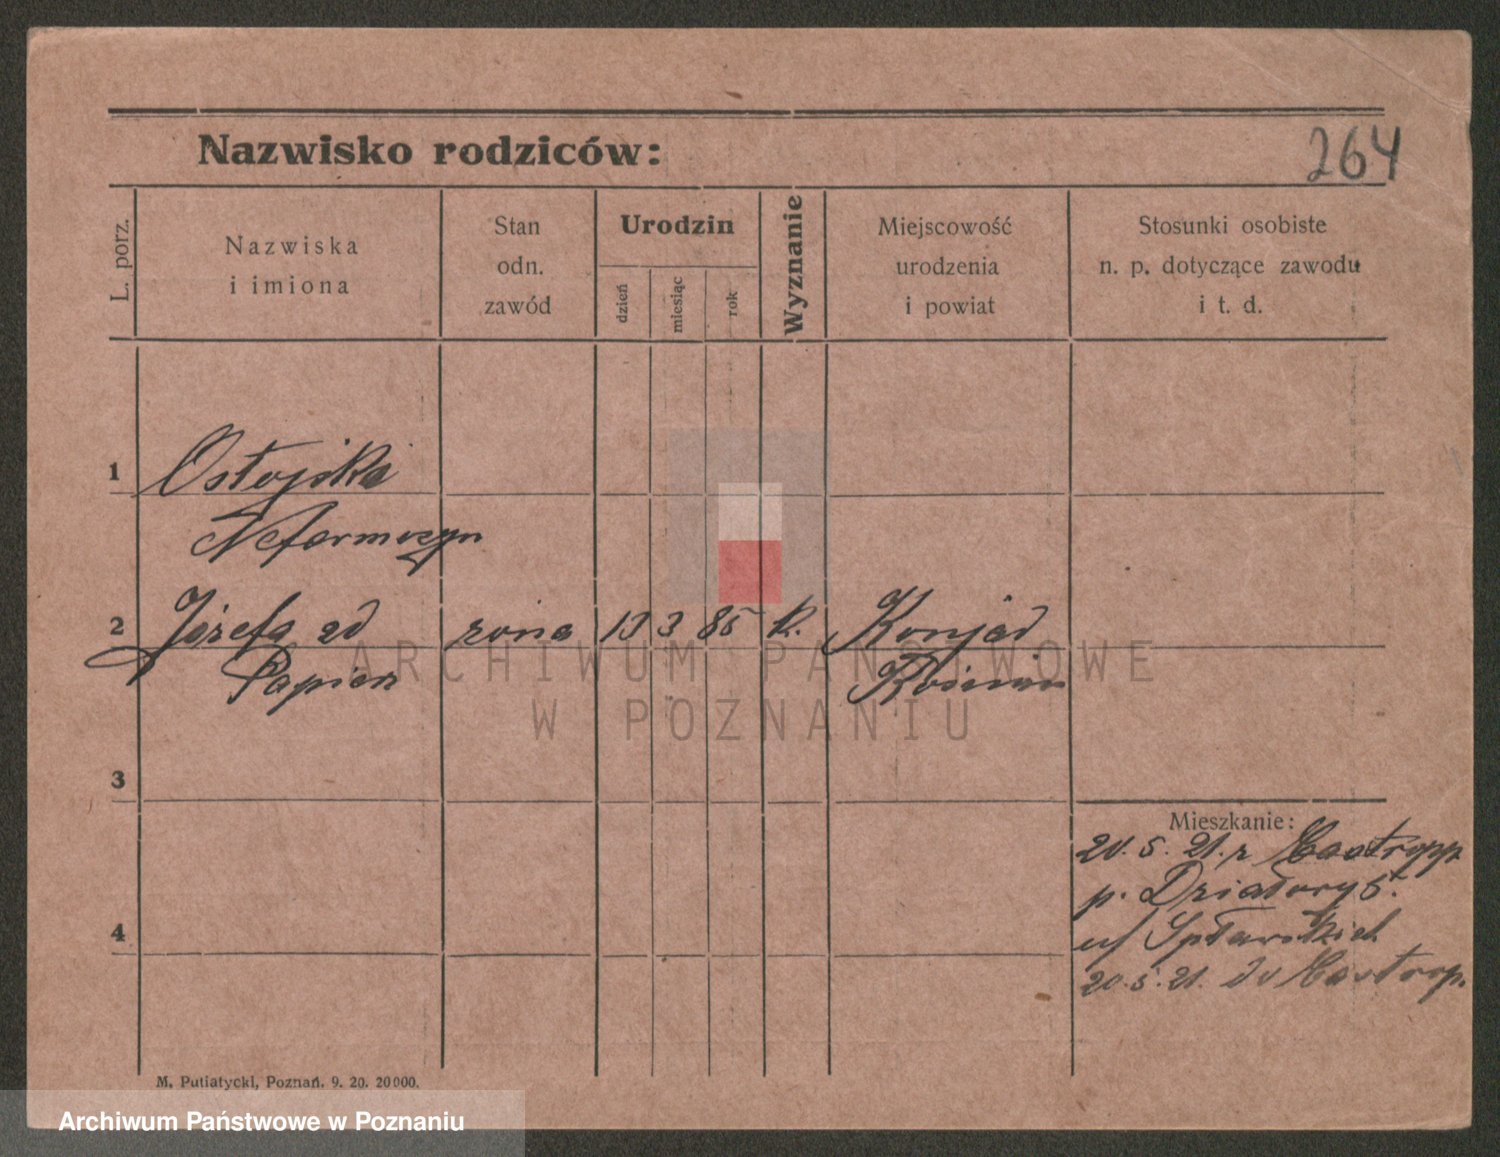 Nazwisko rodziców:
264
L. porz.
Nazwiska
i imiona
Stan
odn.
zawód
Urodzin
dzień
miesiąc
rok
Wyznanie
Miejscowość
urodzenia
i powiat
Stosunki osobiste
n. p. dotyczące zawodu
i t. d.
1
Ostojska
2 Józefa zd żona 13 3 85 k. Konjad
Papież
3
4
Mieszkanie:
20.5.21. z Castropp
p. Działowy 5.
u/
20.5.21. do Castrop.
M. Putiatycki, Poznań. 9. 20. 20000.
ARCHIWUM PAŃSTWOWE
W POZNANIU
Archiwum Państwowe w Poznaniu